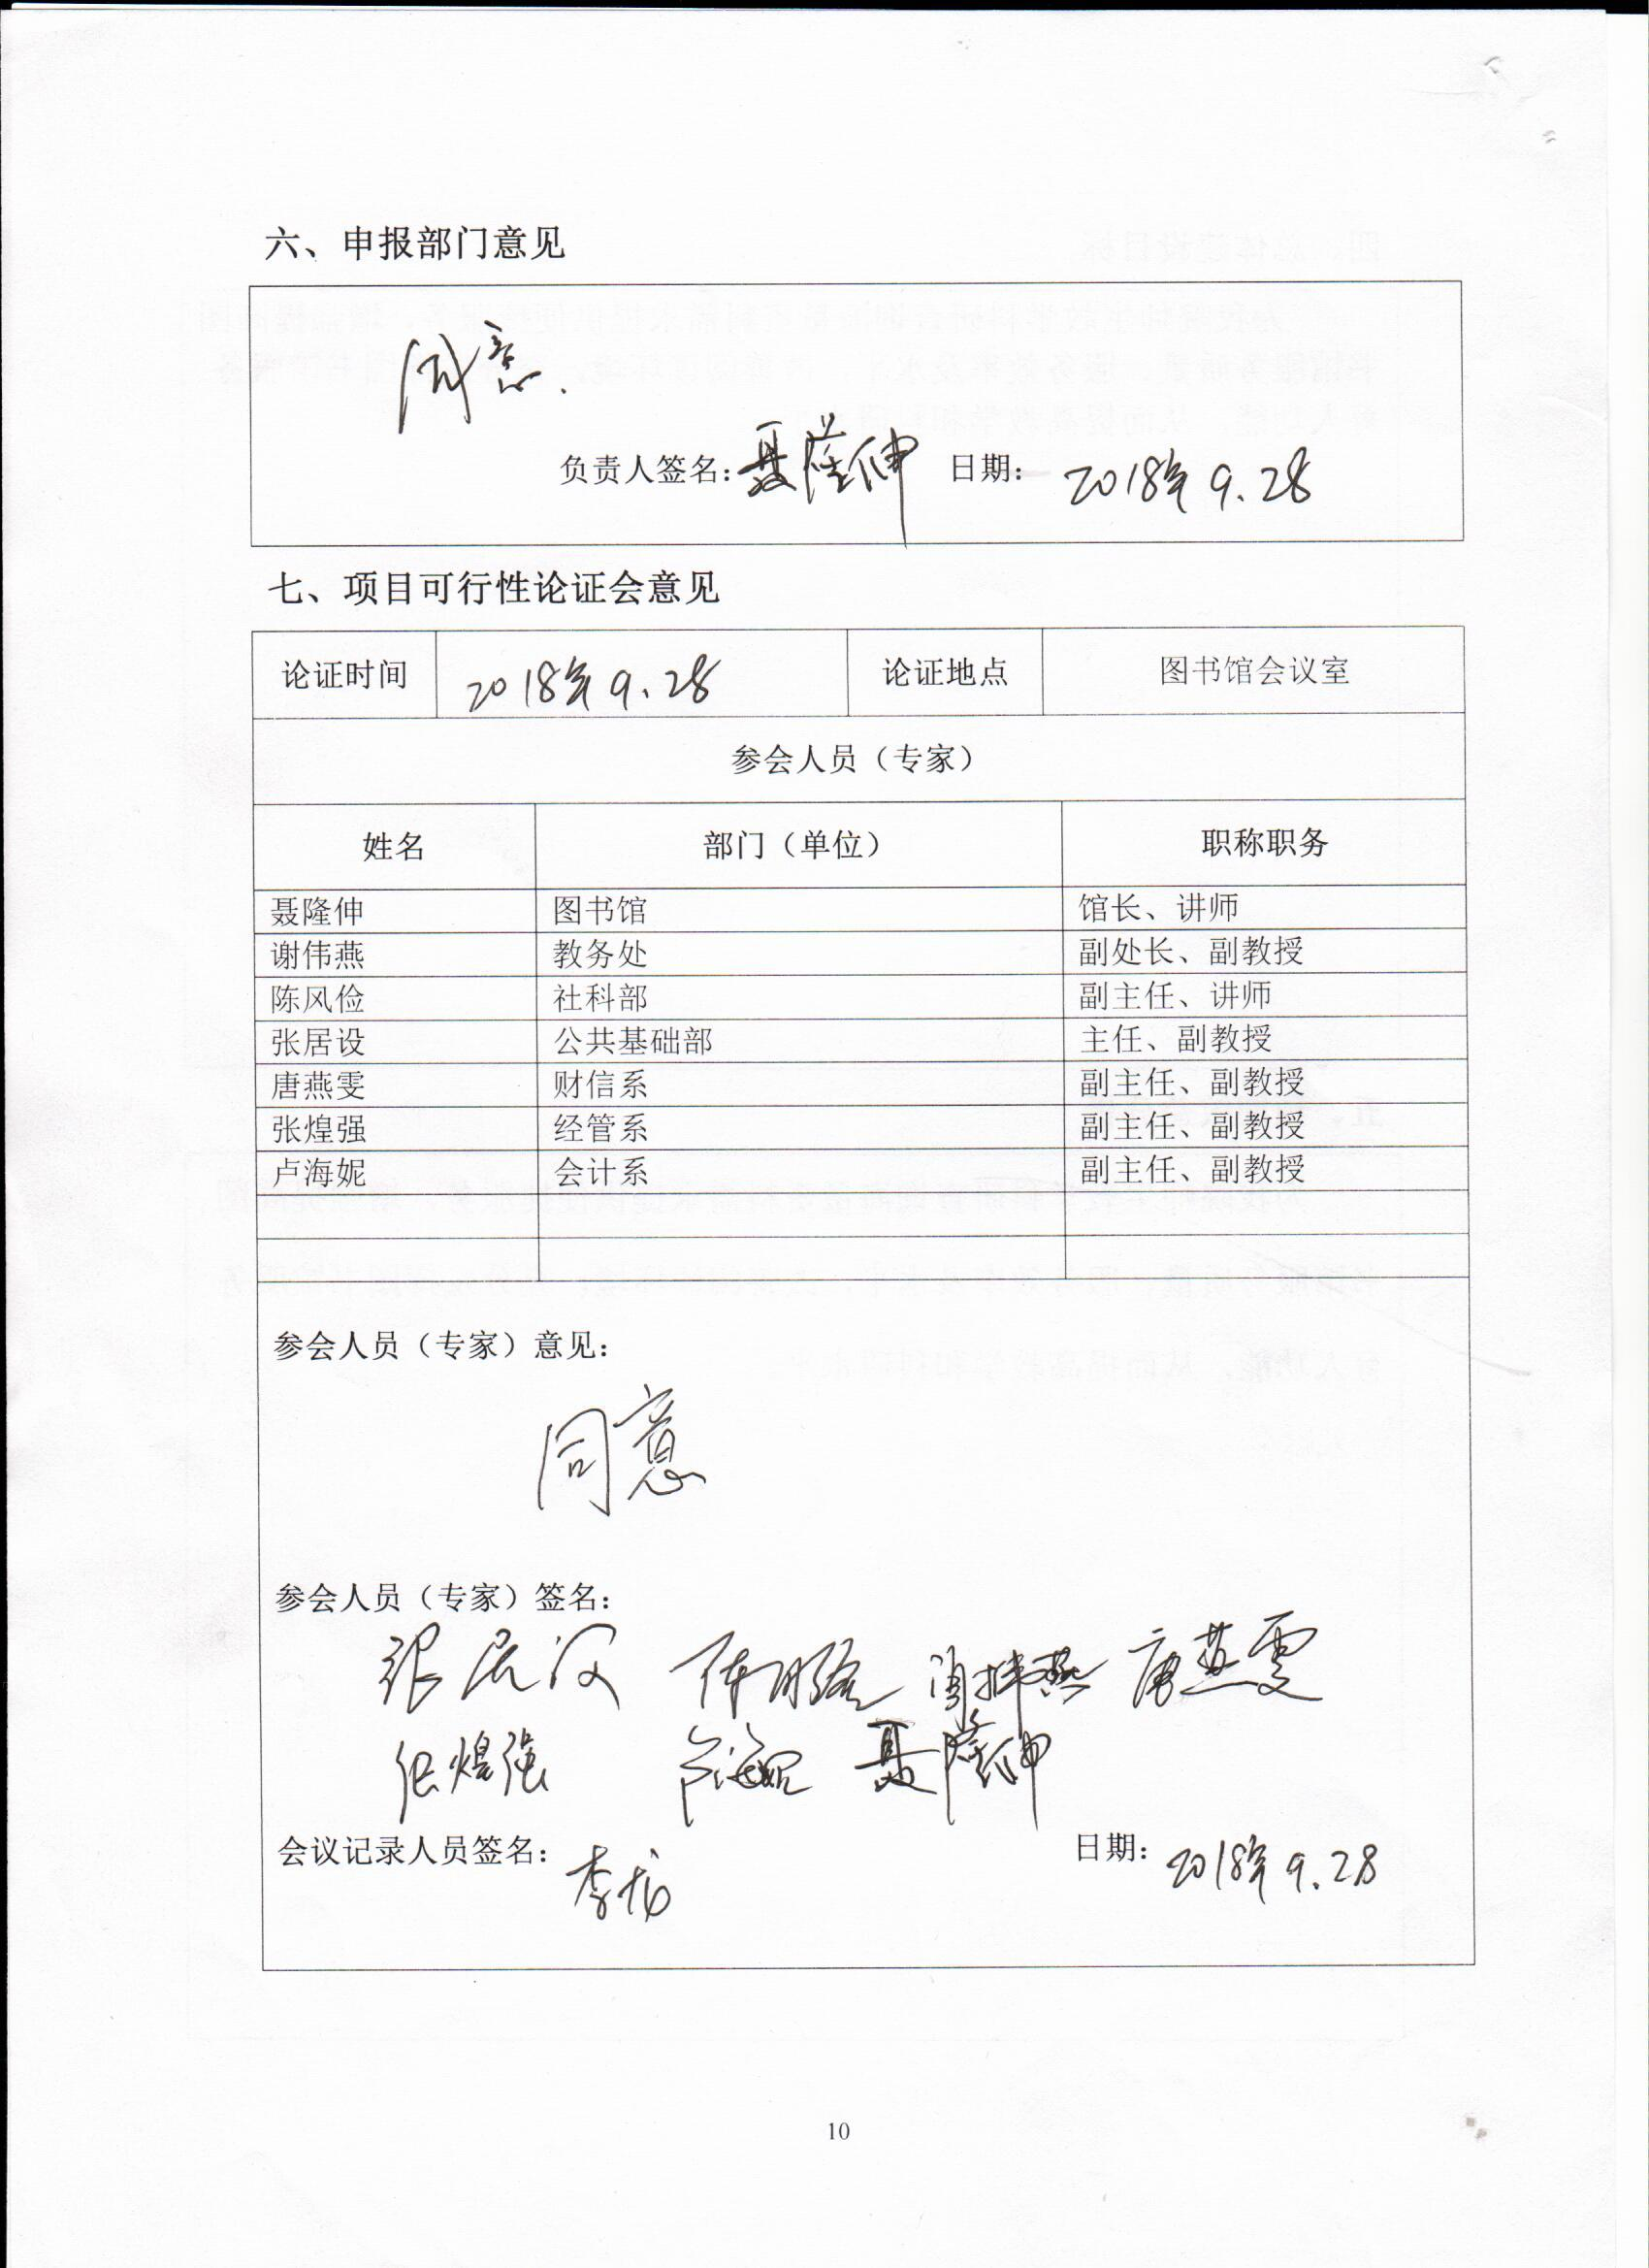 六、申报部门意见
同意.
负责人签名：聂隆伸 日期： 2018年9.28
七、项目可行性论证会意见
论证时间 2018年9.28 论证地点 图书馆会议室
参会人员（专家）
姓名 部门（单位） 职称职务
聂隆伸 图书馆 馆长、讲师
谢伟燕 教务处 副处长、副教授
陈风俭 社科部 副主任、讲师
张居设 公共基础部 主任、副教授
唐燕雯 财信系 副主任、副教授
张煌强 经管系 副主任、副教授
卢海妮 会计系 副主任、副教授
参会人员（专家）意见：
同意
参会人员（专家）签名：
张居设 谢伟燕 唐燕雯
张煌强 卢海妮 聂隆伸
会议记录人员签名： 日期： 2018年9.28
10